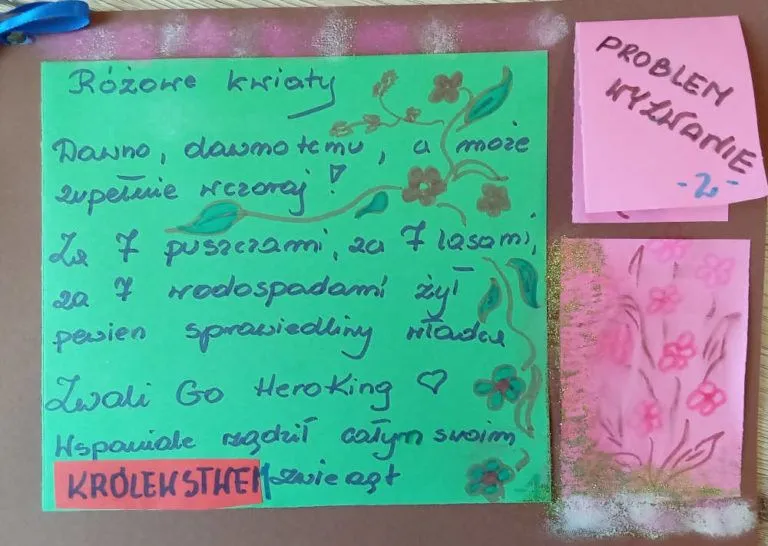 Różowe kwiaty
Dawno, dawno temu, a może
zupełnie wczoraj!
Za 7 puszczami, za 7 lasami,
za 7 wodospadami żył
pewien sprawiedliwy władca
Zwali Go HeroKing ♡
Wspaniale rządził całym swoim
KRÓLEWSTWEM zwierząt
PROBLEM
WYZWANIE
-2-